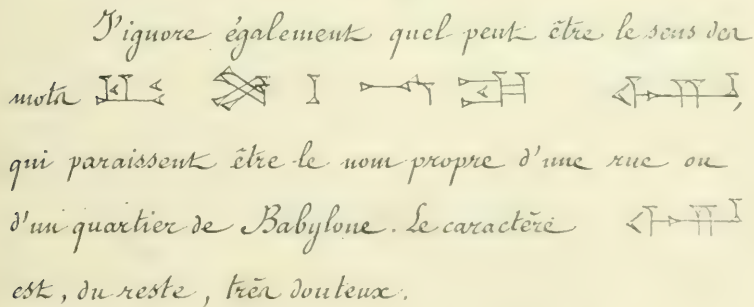 J'ignore également quel peut être le sens des
mots
qui paraissent être le nom propre d'une rue ou
d'un quartier de Babylone. Le caractère
est, du reste, très douteux.